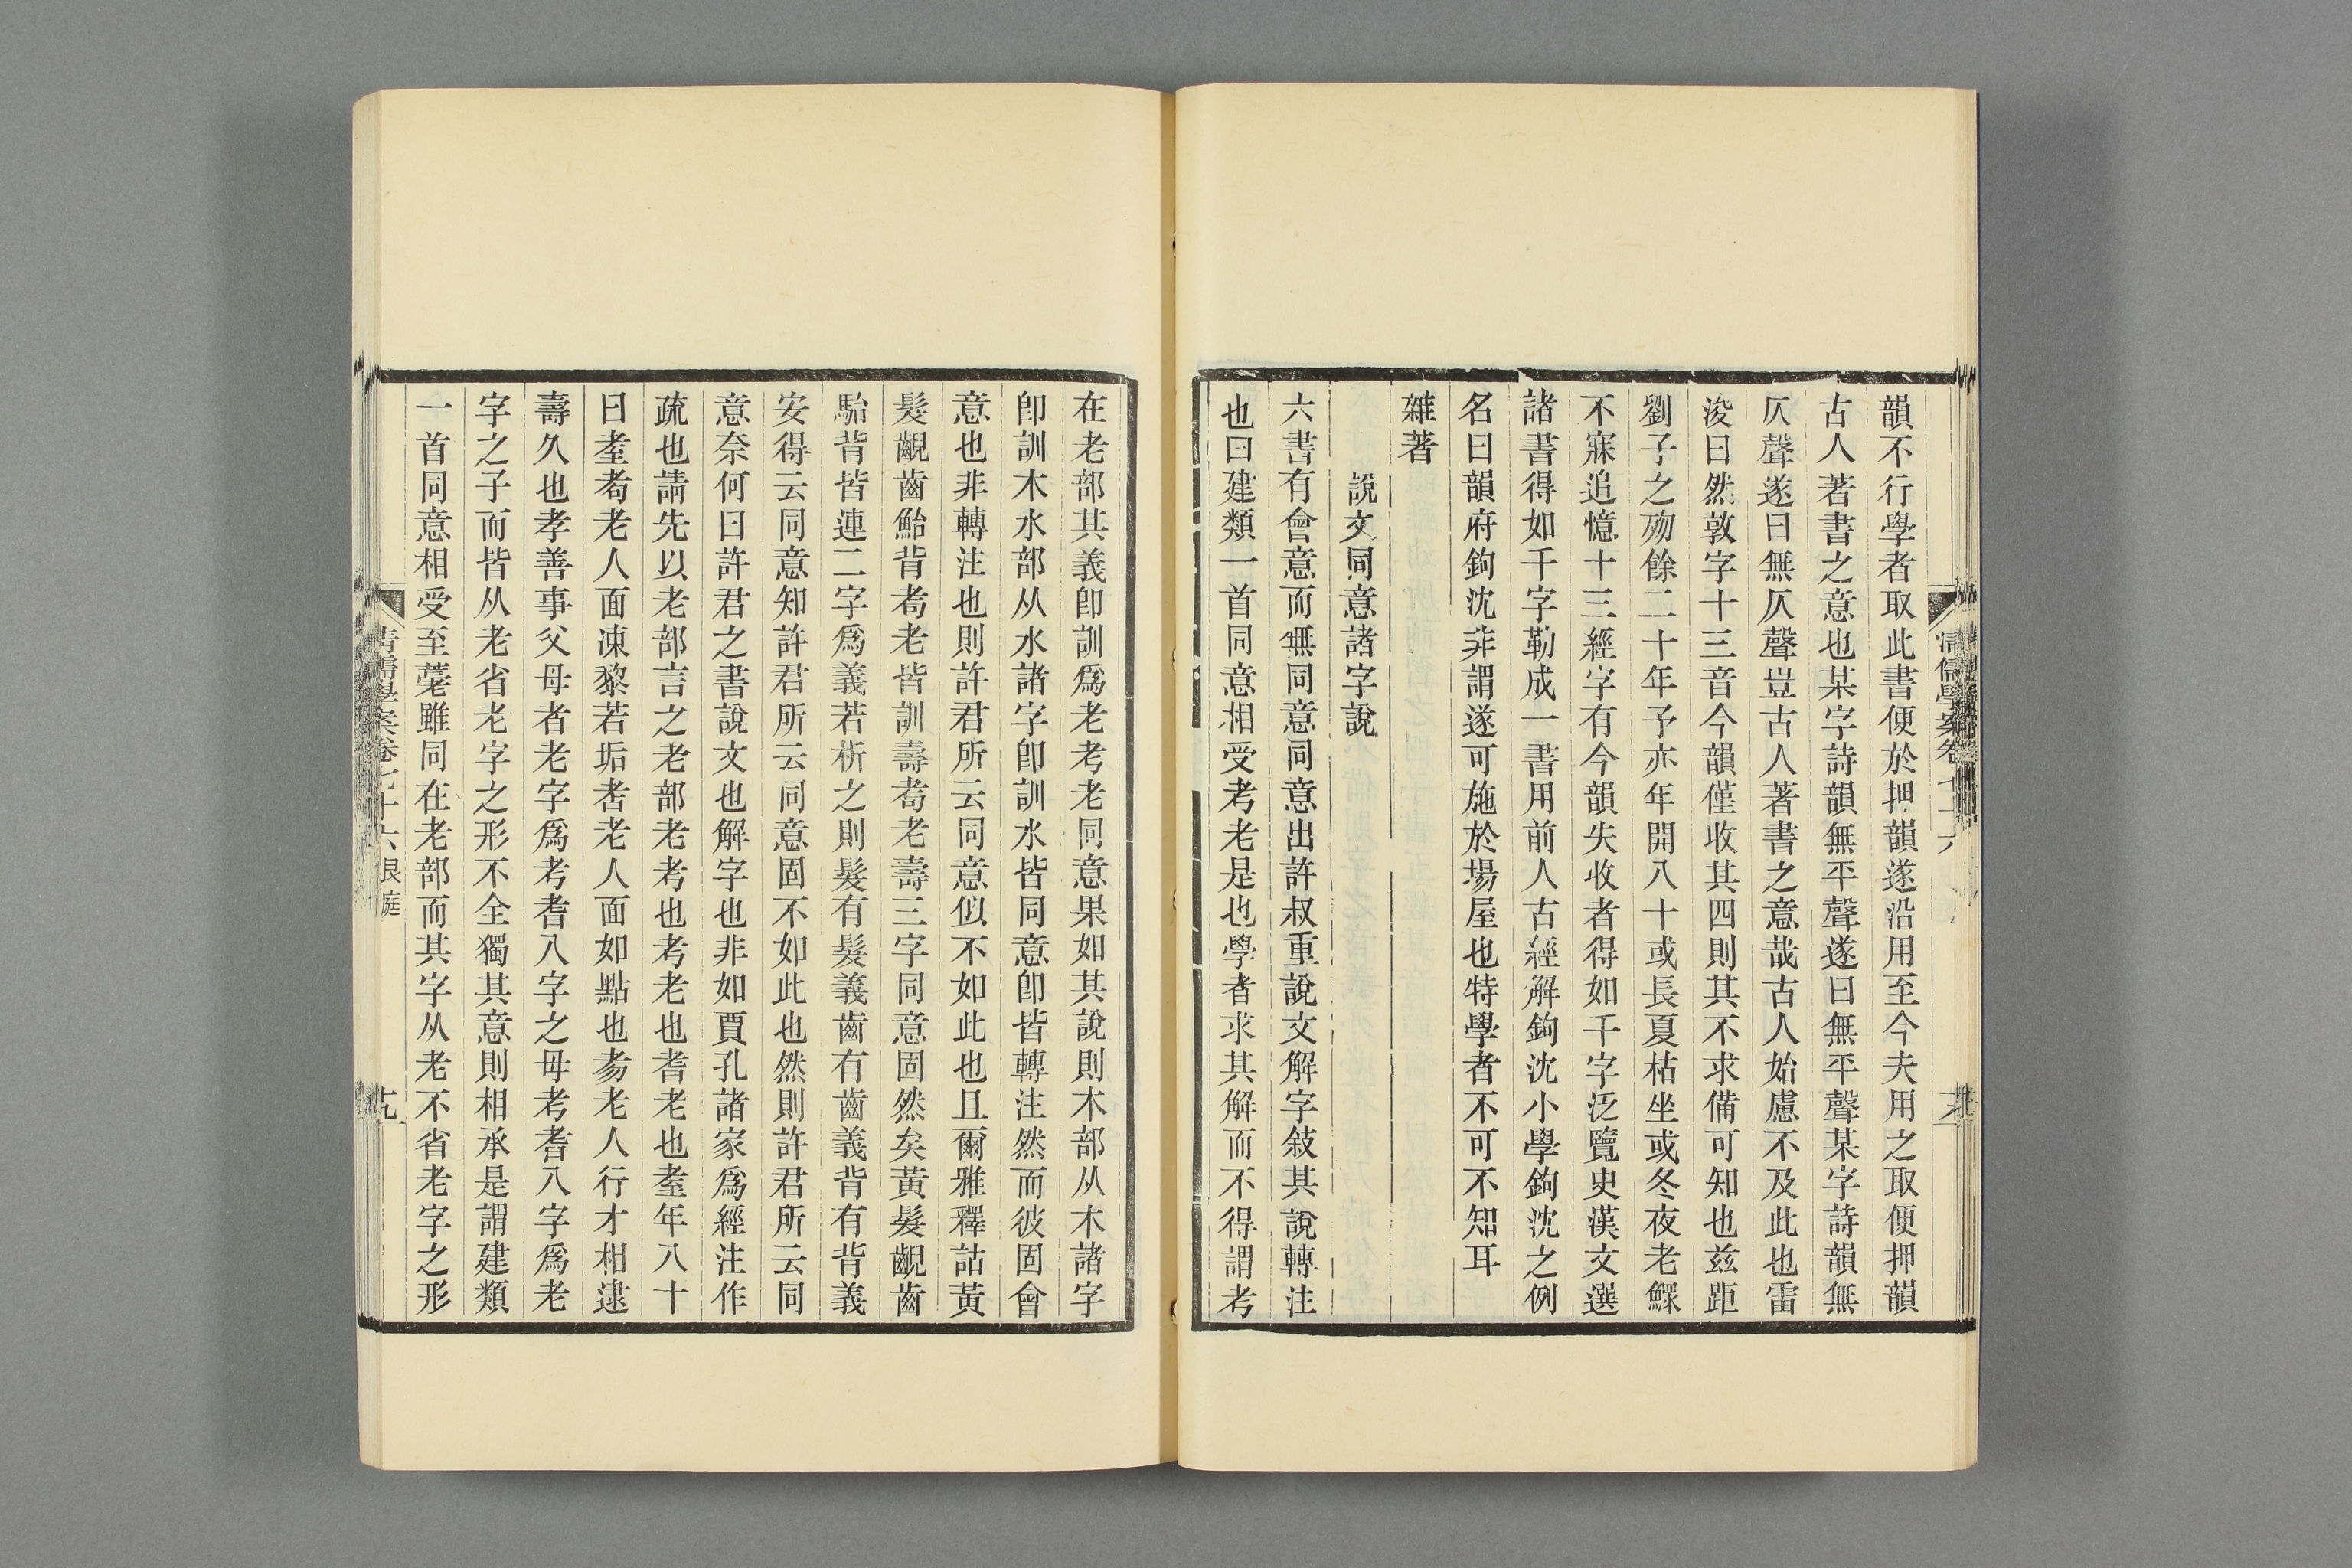 韻不行學者取此書便於押韻遂沿用至今夫用之取便押韻
古人著書之意也某字詩韻無平聲遂曰無平聲某字詩韻無
仄聲遂曰無仄聲豈古人著書之意哉古人始慮不及此也雷
浚曰然敦字十三音今韻僅收其四則其不求備可知也茲距
劉子之歾餘二十年予亦年開八十或長夏枯坐或冬夜老鰥
不寐追憶十三經字有今韻失收者得如干字泛覽史漢文選
諸書得如千字勒成一書用前人古經解鉤沈小學鉤沈之例
名曰韻府鉤沈非謂遂可施於場屋也特學者不可不知耳
雜著
說文同意諸字說
六書有會意而無同意同意出許叔重說文解字敍其說轉注
也曰建類一首同意相受考老是也學者求其解而不得謂考
在老部其義卽訓爲老考老同意果如其說則木部从木諸字
卽訓木水部从水諸字卽訓水皆同意卽皆轉注然而彼固會
意也非轉注也則許君所云同意似不如此也且爾雅釋詁黃
髮齯齒鮐背耇老皆訓壽耇老壽三字同意固然矣黃髮齯齒
駘背皆連二字爲義若析之則髮有髮義齒有齒義背有背義
安得云同意知許君所云同意固不如此也然則許君所云同
意奈何曰許君之書說文也解字也非如賈孔諸家爲經注作
疏也請先以老部言之老部老考也考老也耆老也耋年八十
曰耋耇老人面凍黎若垢者老人面如點也耉老人行才相逮
壽久也孝善事父母者老字爲考耆八字之母考耆八字爲老
字之子而皆从老省老字之形不全獨其意則相承是謂建類
一首同意相受至薹雖同在老部而其字从老不省老字之形
清儒學案卷七十六 艮庭
十九